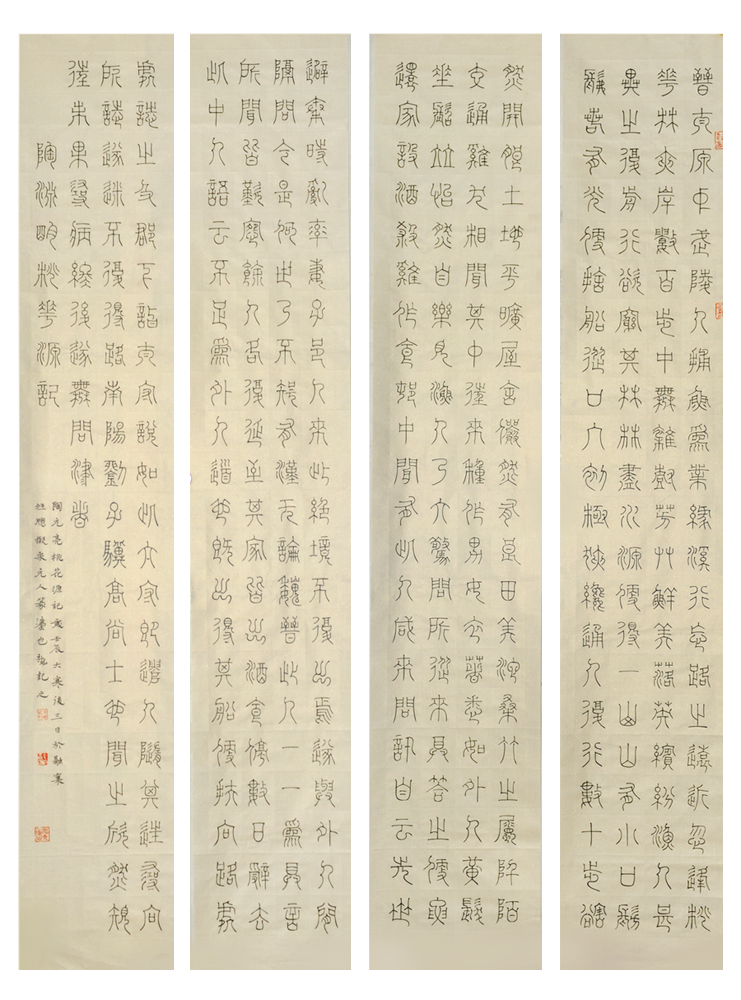 晉太原中武陵人捕魚為業緣溪行忘路之遠近忽逢桃
華林夾岸數百步中無雜樹芳草鮮美落英繽紛漁人甚
異之復前行欲窮其林林盡水源便得一山山有小口髣
髴若有光便捨船從口入初極狹纔通人復行數十步豁
然開朗土地平曠屋舍儼然有良田美池桑竹之屬阡陌
交通雞犬相聞其中往來種作男女衣著悉如外人黃髮
垂髫並怡然自樂見漁人乃大驚問所從來具答之便要
還家設酒殺雞作食邨中聞有此人咸來問訊自云先世
避秦時亂率妻子邑人來此絕境不復出焉遂與外人間
隔問今是何世乃不知有漢无論魏晉此人一一為具言
所聞皆歎惋餘人各復延至其家皆出酒食停數日辭去
此中人語云不足為外人道也既出得其船便扶向路處
處誌之及郡下詣太守說如此太守即遣人隨其往尋向
所誌遂迷不復得路南陽劉子驥高尚士也聞之欣然規
往未果尋病終後遂無問津者
陶淵明桃華源記
陶元亮桃花源記歲壬辰大寒後三日於融寒
宋元人篆法也記之